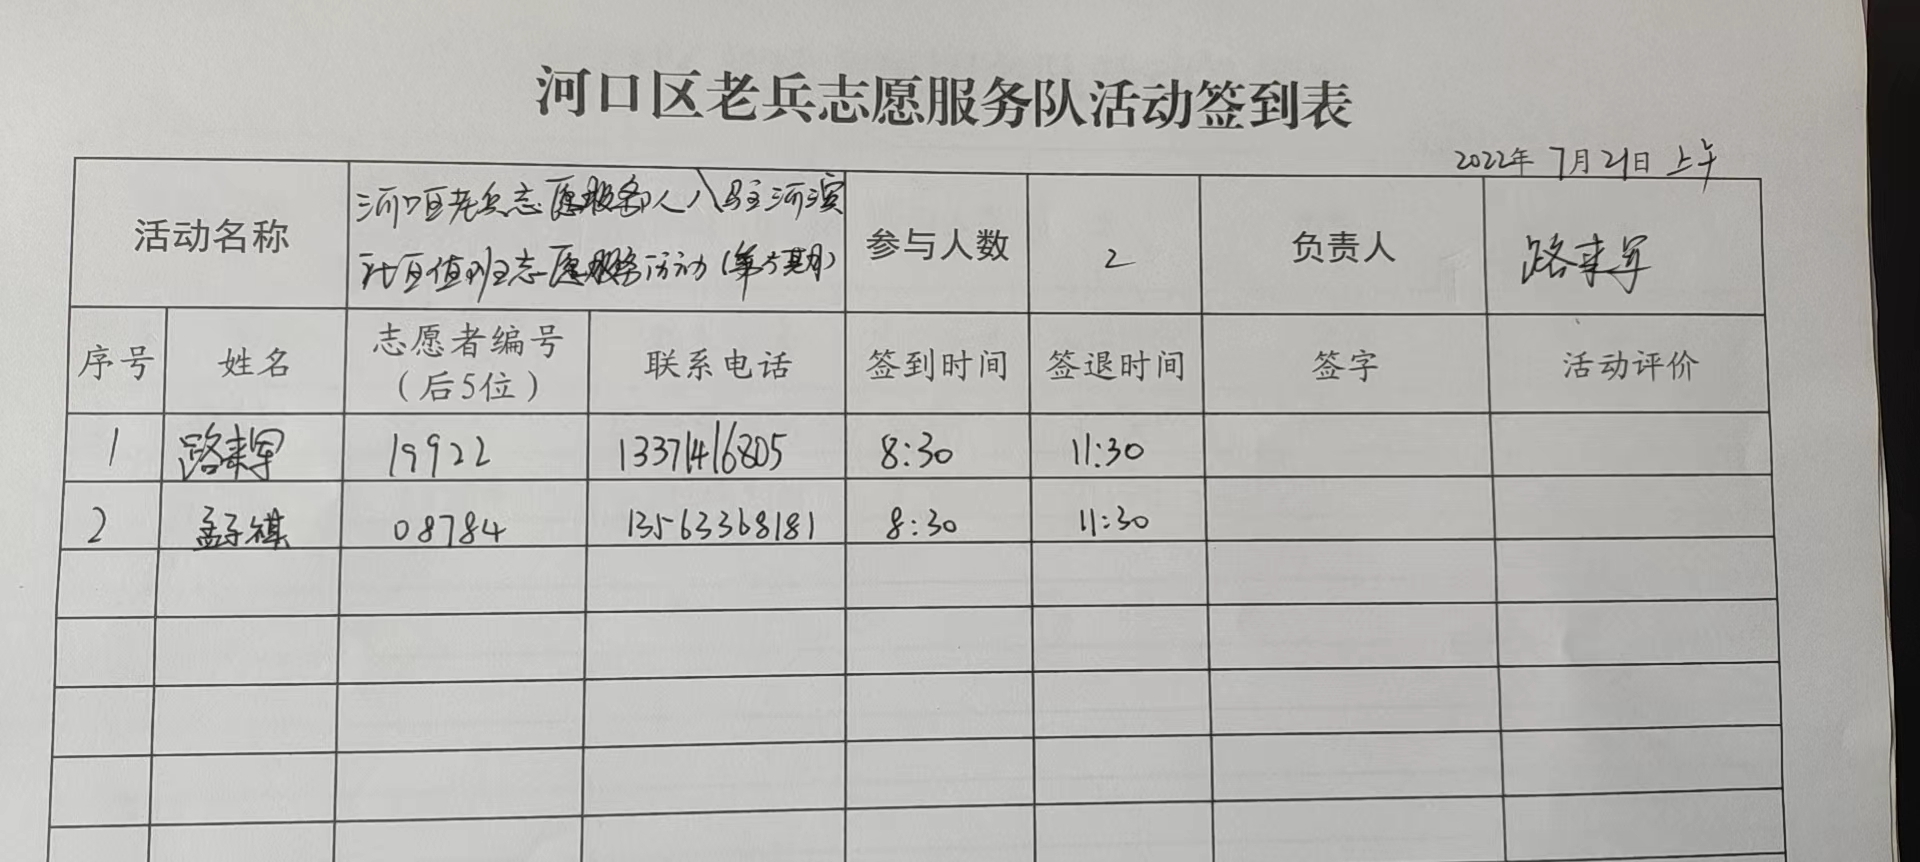 河口区老兵志愿服务队活动签到表
2022年 7月21日 上午
活动名称
河口区老兵志愿服务队人入驻河滨
社区值班志愿服务活动(第5期)
参与人数
2
负责人
路来军
序号
姓名
志愿者编号
(后5位)
联系电话
签到时间
签退时间
签字
活动评价
1 路来军 19922 13371416805 8:30 11:30
2 孟子祺 08784 13563368181 8:30 11:30